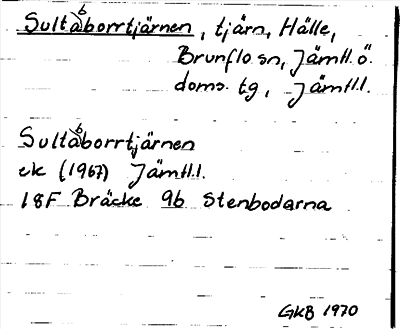 Sultabborrtjärnen, tjärn, Hälle,
Brunflo sn, Jämtl. ö.
doms. tg, Jämtl.l.
Sultabborrtjärnen
ek (1967) Jämtl.l.
18F Bräcke 9b Stenbodarna
GKB 1970